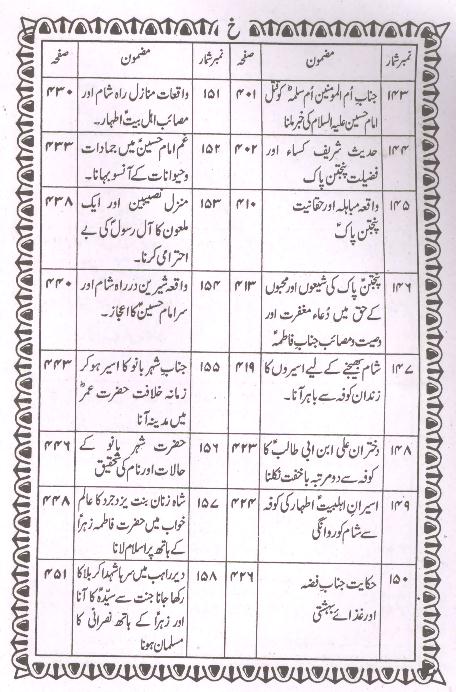 خ
نمبر شمار مضمون صفحہ
۱۴۳ جناب اُم المومنین اُم سلمہؓ کو قتل ۴۰۱
امام حسین علیہ السلام کی خبر ملنا
۱۴۴ حدیث شریف کساء اور ۴۰۲
فضیلت پنجتن پاک
۱۴۵ واقعہ مباہلہ اور حقانیت ۴۱۰
پنجتن پاکؑ
۱۴۶ پنجتنؑ پاک کی شیعوں اور محبوں ۴۱۳
کے حق میں دُعاء مغفرت اور
وصیت و مصائب جناب فاطمہؑ
۱۴۷ شام بھیجنے کے لیے اسیروں کا ۴۱۹
زندان کوفہ سے باہر آنا۔
۱۴۸ دختران علی ابن ابی طالبؑ کا ۴۲۳
کوفہ سے دو مرتبہ باخفت نکلنا
۱۴۹ اسیرانِ اہلبیتؑ اطہار کی کوفہ ۴۲۴
سے شام کو روانگی
۱۵۰ حکایت جنابِ فضہ ۴۲۶
اور غذائے بہشتی
نمبر شمار مضمون صفحہ
۱۵۱ واقعات منازل راہ شام اور ۴۳۰
مصائب اہل بیتؑ اطہار۔
۱۵۲ غم امام حسینؑ میں جمادات ۴۳۳
و حیوانات کے آنسو بہانا۔
۱۵۳ منزل نصیبین اور ایک ۴۳۸
ملعون کا آل رسولؐ کی بے
احترامی کرنا۔
۱۵۴ واقعہ شیرین در راہ شام اور ۴۴۰
سر امام حسینؑ کا اعجاز۔
۱۵۵ جناب شہر بانو کا اسیر ہو کر ۴۴۳
زمانہ خلافت حضرت عمرؓ
میں مدینہ آنا
۱۵۶ حضرت شہر بانو کے ۴۴۶
حالات اور نام کی تحقیق
۱۵۷ شاہ زنان بنت یزدجرد کا عالم ۴۴۸
خواب میں حضرت فاطمہ زہراؑ
کے ہاتھ پر اسلام لانا
۱۵۸ دیر راہب میں سر ہا شہدا کربلا کا ۴۵۱
رکھا جانا جنت سے سیّدہؑ کا آنا
اور زہراؑ کے ہاتھ نصرانی کا
مسلمان ہونا